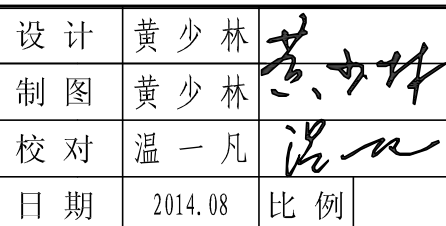 设 计 黄 少 林 黄少林
制 图 黄 少 林
校 对 温 一 凡 温一凡
日 期 2014.08 比 例